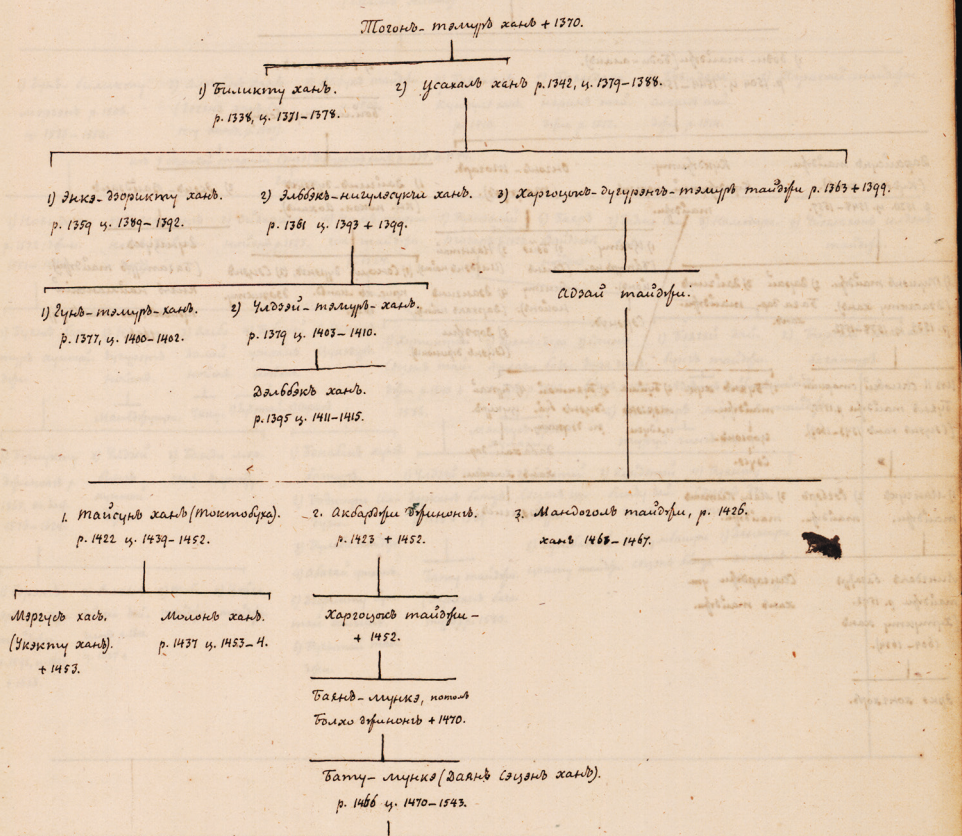 Тогонъ-тэмуръ ханъ + 1370.
1) Биликту ханъ.
р. 1338, ц. 1371–1378.
2) Усахалъ ханъ р. 1342, ц. 1379–1388.
1) Энкэ-дзорикту ханъ.
р. 1359 ц. 1389–1392.
2) Эльбэкъ-нигулэсукчи ханъ.
р. 1361 ц. 1393 + 1399.
3) Харгоцокъ-дугурэнгъ-тэмуръ тайджи р. 1363 + 1399.
1) Гунъ-тэмуръ-ханъ.
р. 1377, ц. 1400–1402.
2) Улдзэй-тэмуръ-ханъ.
р. 1379 ц. 1403–1410.
Адзай тайджи.
Дэльбэкъ ханъ.
р. 1395 ц. 1411–1415.
1. Тайсунъ ханъ (Токтобуха).
р. 1422 ц. 1439–1452.
2. Акбарджи джинонгъ.
р. 1423 + 1452.
3. Мандоголъ тайджи, р. 1426.
ханъ 1463–1467.
Мэргусъ хасъ.
(Укэкту ханъ).
+ 1453.
Молонъ ханъ.
р. 1437 ц. 1453–4.
Харгоцокъ тайджи –
+ 1452.
Баянъ-мункэ, потомъ
Болхо джинонгъ + 1470.
Бату-мункэ (Даянъ Сэцэнъ ханъ).
р. 1466 ц. 1470–1543.